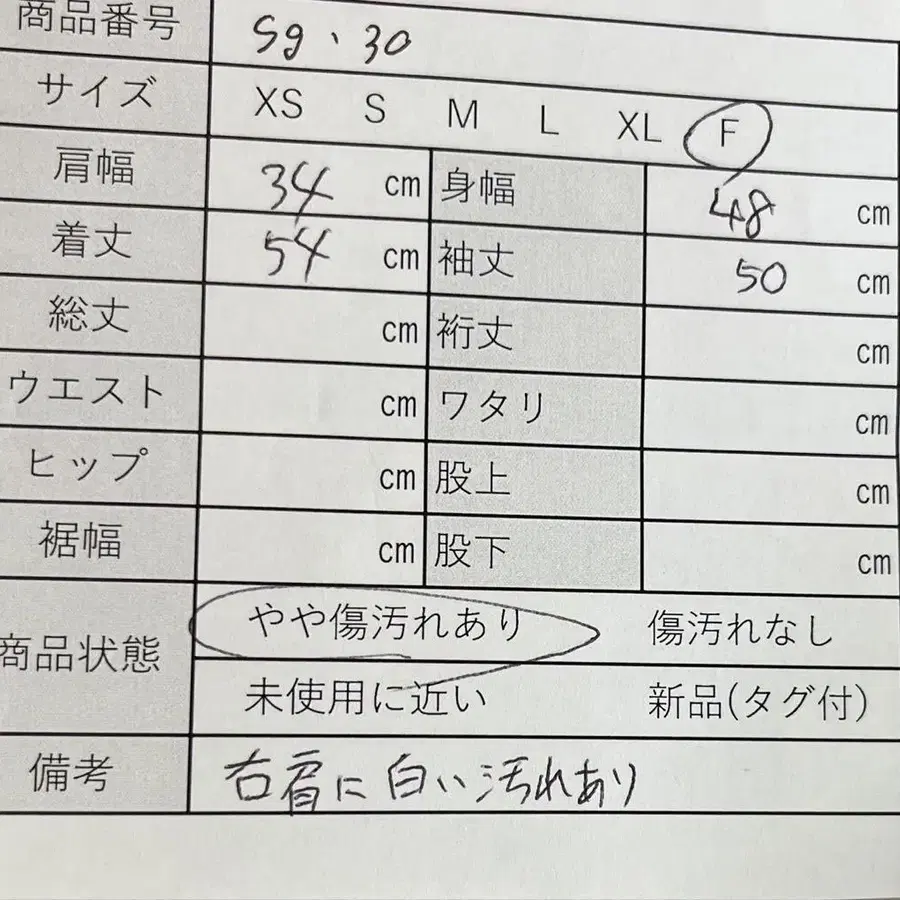 商品番号 Sg、30
サイズ XS S M L XL F
肩幅 34 cm 身幅 48 cm
着丈 54 cm 袖丈 50 cm
総丈 cm 裄丈 cm
ウエスト cm ワタリ cm
ヒップ cm 股上 cm
裾幅 cm 股下 cm
商品状態 やや傷汚れあり 傷汚れなし
未使用に近い 新品(タグ付)
備考 右肩に白い汚れあり